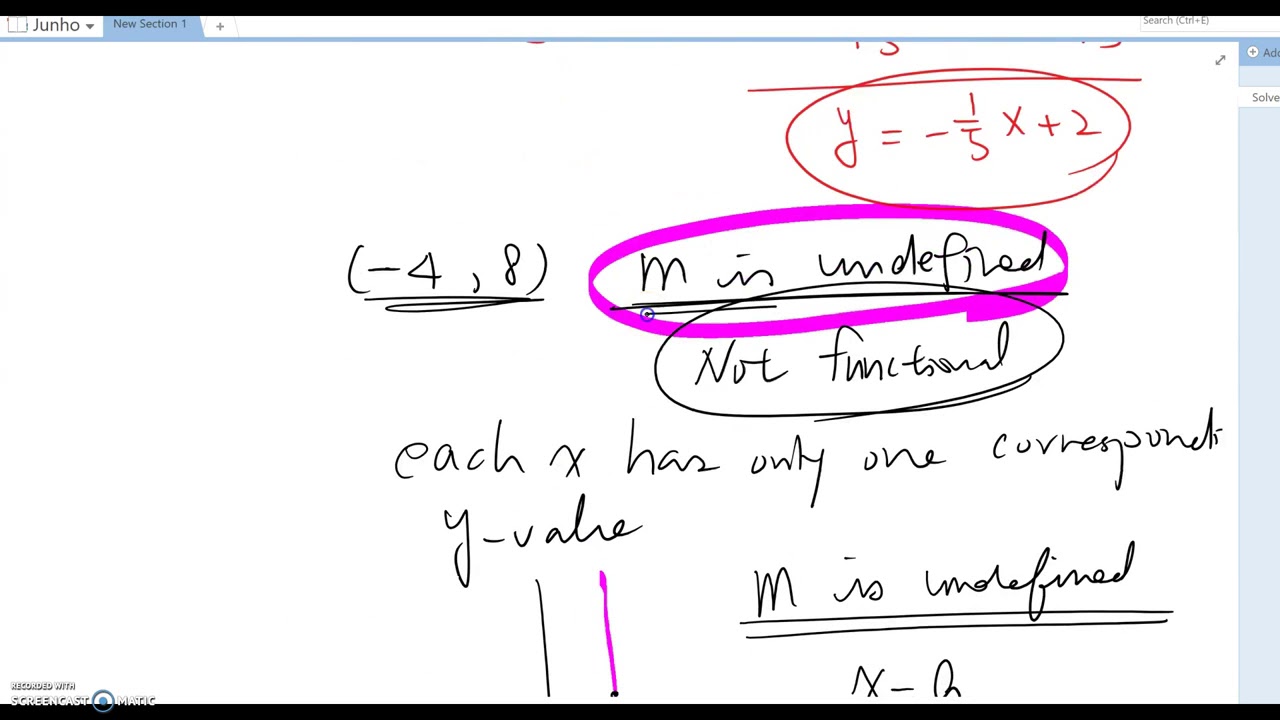 Junho
New Section 1
+
Search (Ctrl+E)
Add
Solve
y = -1/5 x + 2
(-4, 8) m is undefined
Not functional
each x has only one correspondi
y-value
m is undefined
RECORDED WITH
SCREENCAST MATIC